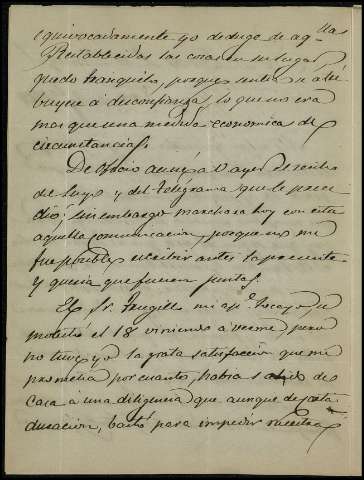 equivocadamente yo dedugo de aqllas
Restablecidas las cosas en su lugar
quedo tranquilo, porque sentia se atri-
buyese á desconfianza lo que no era
mas que una medida economica de
circunstancias.
De oficio acusé á V ayer el recibo
del suyo y del telégrama que le prece-
dió: sin embargo marchará hoy con esta
aquella comunicacion, porque no me
fue posible escribir antes la presente
y queria que fueran juntas.
El Sr. Trugillo mi apo. tocayo se
molestó el 18 viniendo á verme, pero
no tuve yo la grata satisfaccion que me
prometia por cuanto, habia salido de
casa á una diligencia que aunque de corta
duracion, bastó para impedir nuestra